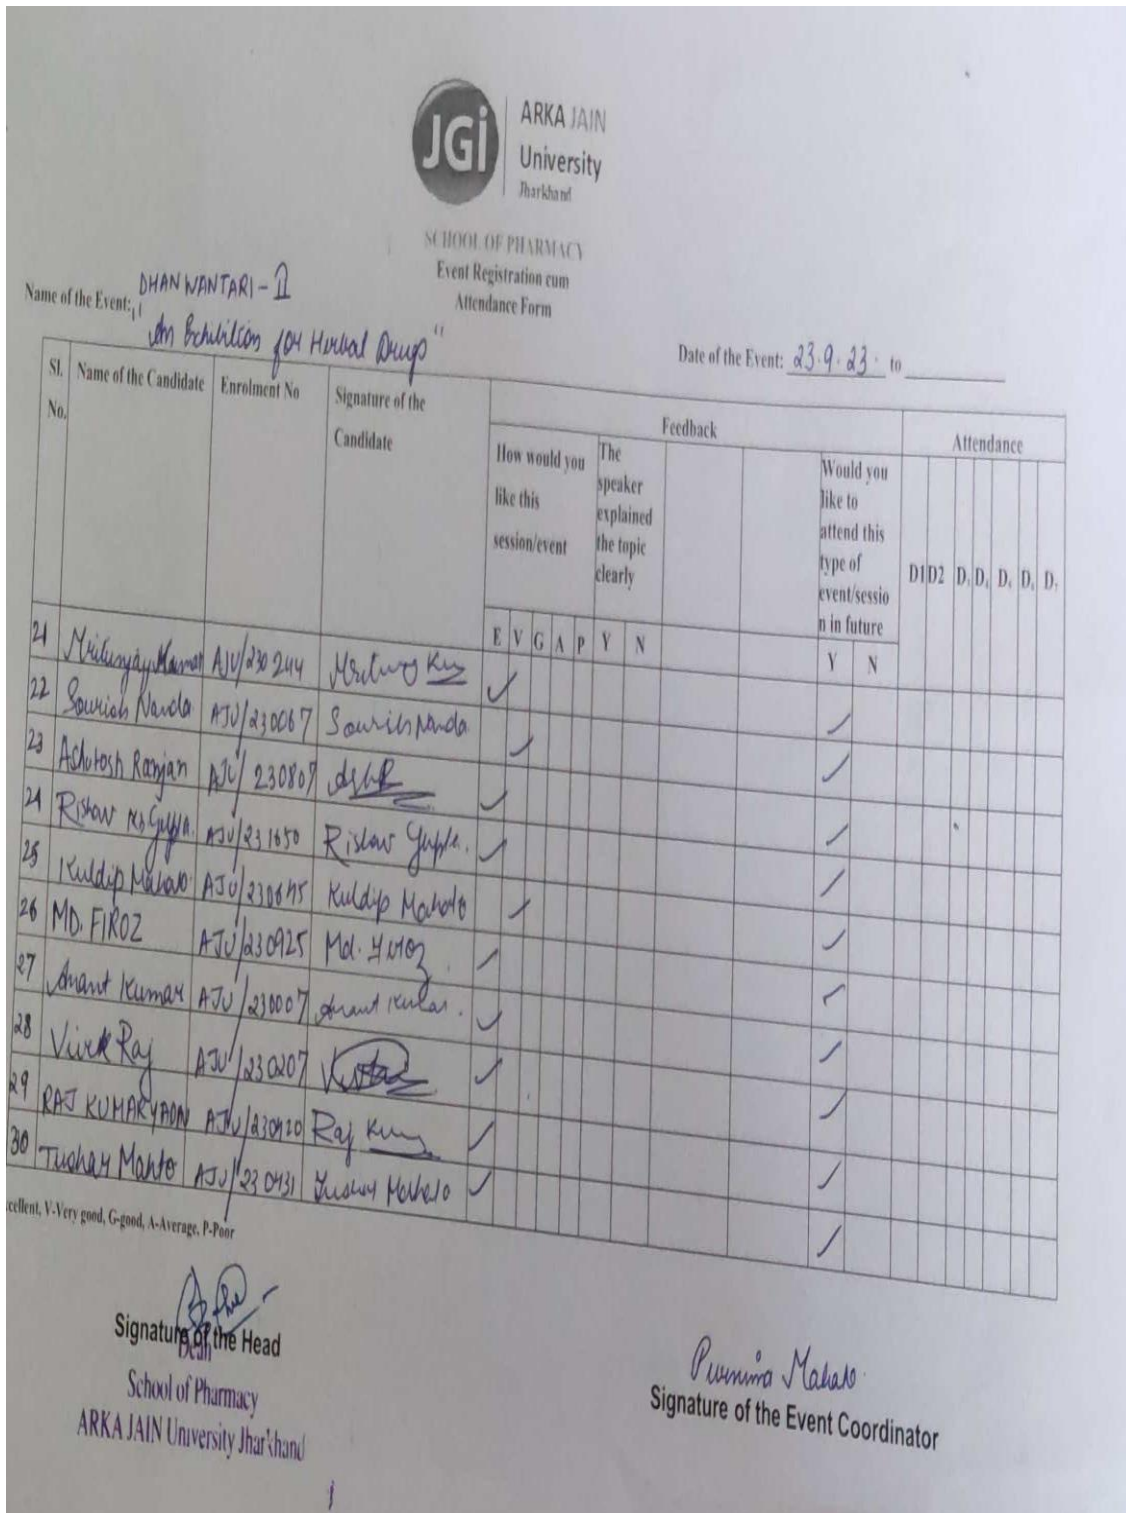 JGi
ARKA JAIN
University
Jharkhand
SCHOOL OF PHARMACY
Event Registration cum
Attendance Form
Name of the Event: DHANWANTARI - II
"An Exhibition for Herbal Drugs"
Date of the Event: 23.9.23. to
Sl. No. Name of the Candidate Enrolment No Signature of the Candidate Feedback Attendance
How would you like this session/event
The speaker explained the topic clearly
Would you like to attend this type of event/sessio n in future
D1 D2 D3 D4 D5 D6 D7
E V G A P Y N Y N
21 Mritunjay Kumar AJU/230244
22 Sourish Nanda AJU/230067 Sourish Nanda
23 Ashutosh Ranjan AJU/230807
24 Rishav Kr Gupta. AJU/231650 Rishav Gupta.
25 Kuldip Mahato AJU/230645 Kuldip Mahato
26 MD. FIROZ AJU/230925 Md. Firoz
27 Anant Kumar AJU/230007 Anant Kumar.
28 Vivek Raj AJU/230207
29 RAJ KUMAR YADN AJU/230420 Raj
30 Tushar Mahto AJU/230431 Tushar Mahato
cellent, V-Very good, G-good, A-Average, P-Poor
Signature of the Head
Dean
School of Pharmacy
ARKA JAIN University Jharkhand
Purnima Mahato
Signature of the Event Coordinator